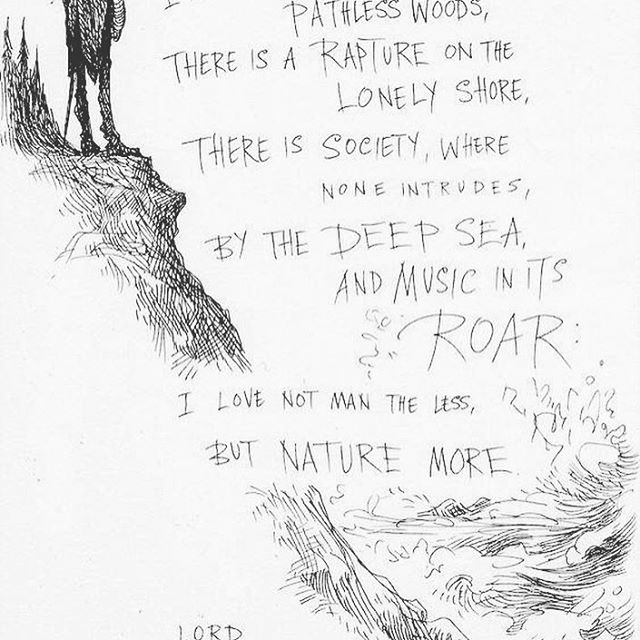 PATHLESS WOODS,
THERE IS A RAPTURE ON THE
LONELY SHORE,
THERE IS SOCIETY, WHERE
NONE INTRUDES,
BY THE DEEP SEA,
AND MUSIC IN ITS
ROAR:
I LOVE NOT MAN THE LESS,
BUT NATURE MORE
LORD